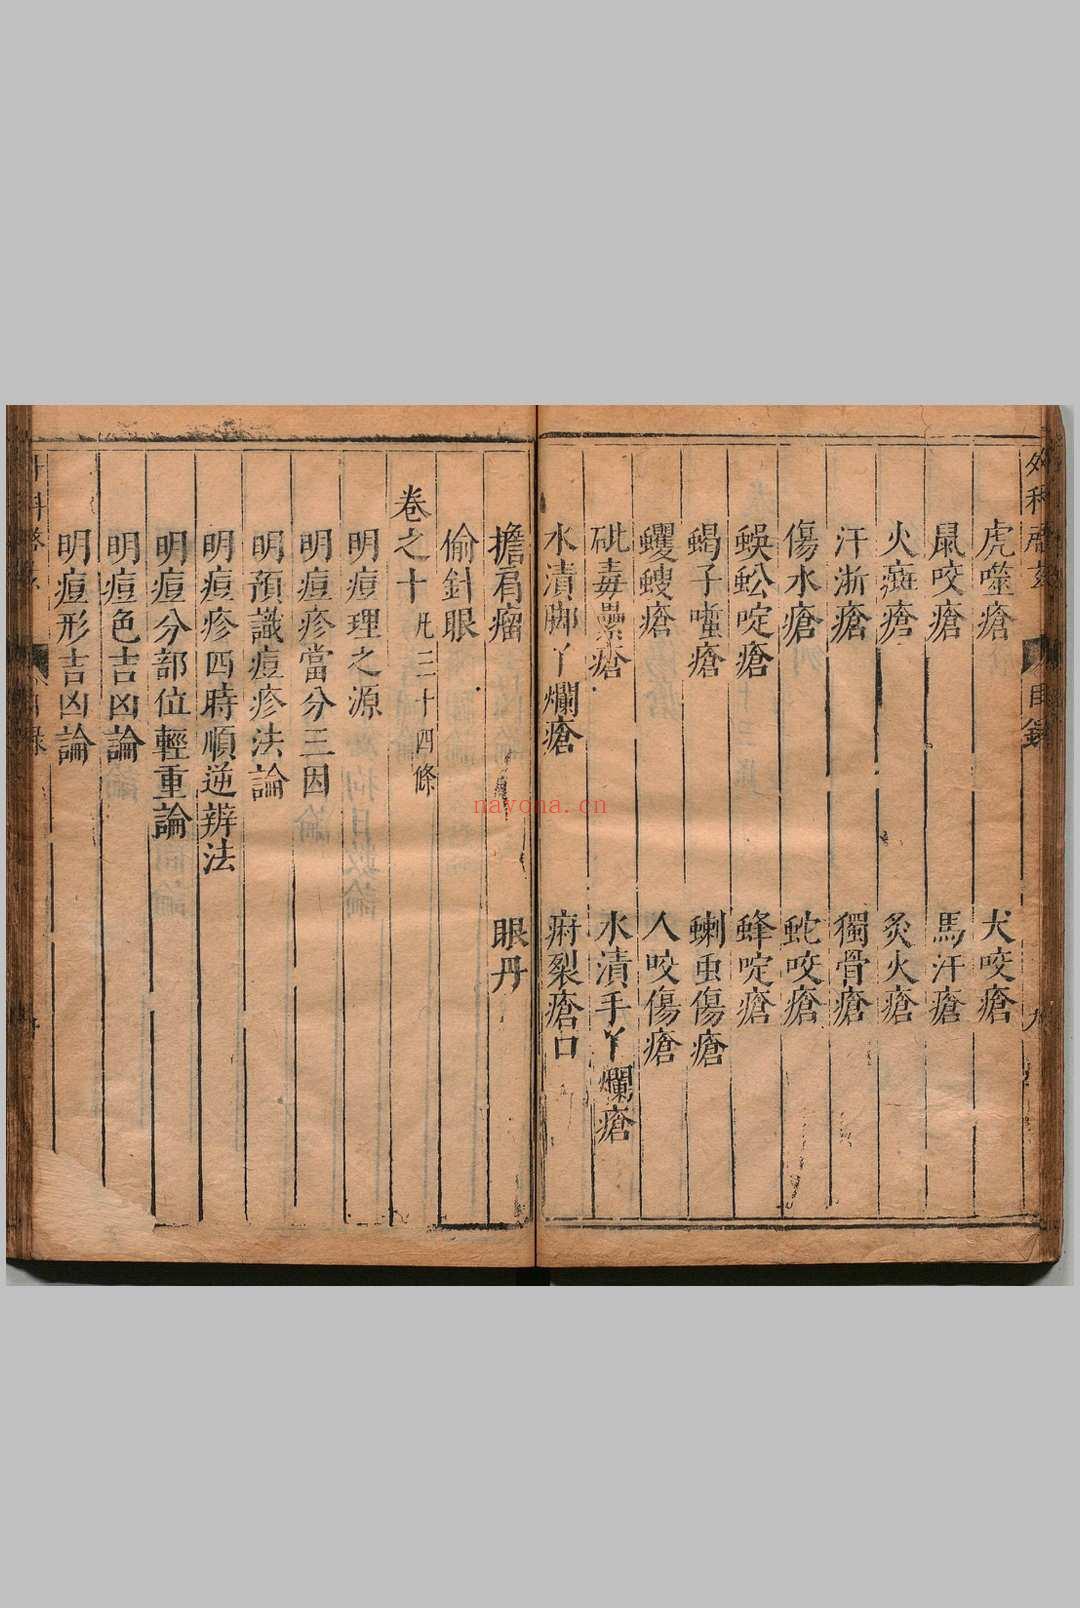 外科啟玄 目錄 九
虎噬瘡 犬咬瘡
鼠咬瘡 馬汗瘡
火瘢瘡 灸火瘡
汗淅瘡 獨骨瘡
傷水瘡 蛇咬瘡
蜈蚣啶瘡 蜂啶瘡
蝎子㗧瘡 蝲虫傷瘡
蠼螋瘡 人咬傷瘡
砒毒㿔瘡 水漬手丫爛瘡
水漬脚丫爛瘡 痳裂瘡口
擔肩瘤 眼丹
偷針眼
卷之十 凡三十四條
明痘理之源
明痘疹當分三因
明預識痘疹法論
明痘疹四時順逆辨法
明痘分部位輕重論
明痘色吉凶論
明痘形吉凶論
nayona.cn